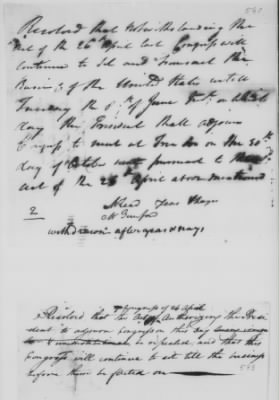 561
Resolved that Notwithstanding the
Act of the 26th April last Congress will
continue to sit and transact the
Business of the United States untill
Tuesday the of June on which
day the President shall adjourn
Congress to meet at Trenton on the 30th
day of October next pursuant to the
Act of the 26th April above mentioned
2
withdrawn after yeas & nays
of Congress of 26 April
Resolved that the Act Authorizing the Presi
dent to adjourn Congress on this day
is repealed, and that this
Congress will continue to sit till the business
before them be
563